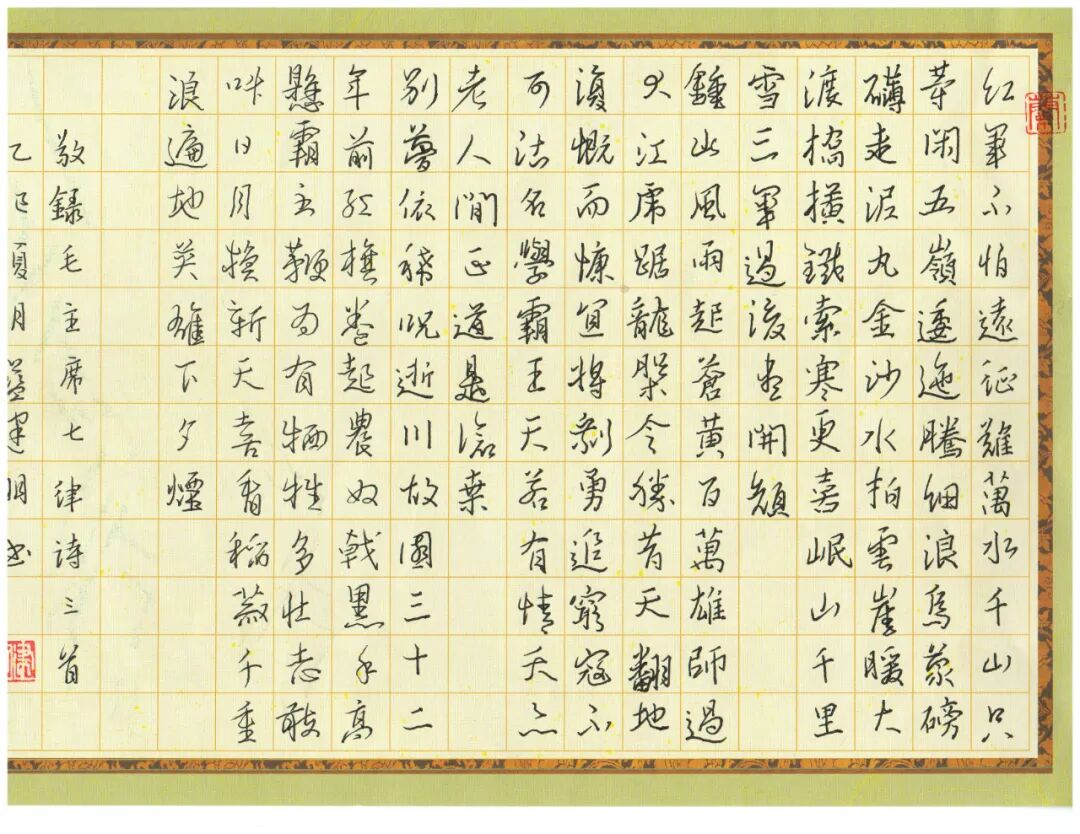 紅軍不怕遠征難萬水千山只
等閑五嶺逶迤騰細浪烏蒙磅
礴走泥丸金沙水拍雲崖暖大
渡橋橫鐵索寒更喜岷山千里
雪三軍過後盡開顏
鍾山風雨起蒼黃百萬雄師過
大江虎踞龍槃今勝昔天翻地
復慨而慷宜將剩勇追窮寇不
可沽名學霸王天若有情天亦
老人間正道是滄桑
別夢依稀咒逝川故園三十二
年前紅旗卷起農奴戟黑手高
懸霸主鞭為有牺牲多壯志敢
叫日月換新天喜看稻菽千重
浪遍地英雄下夕煙
敬錄毛主席七律詩三首
乙巳夏月建明书